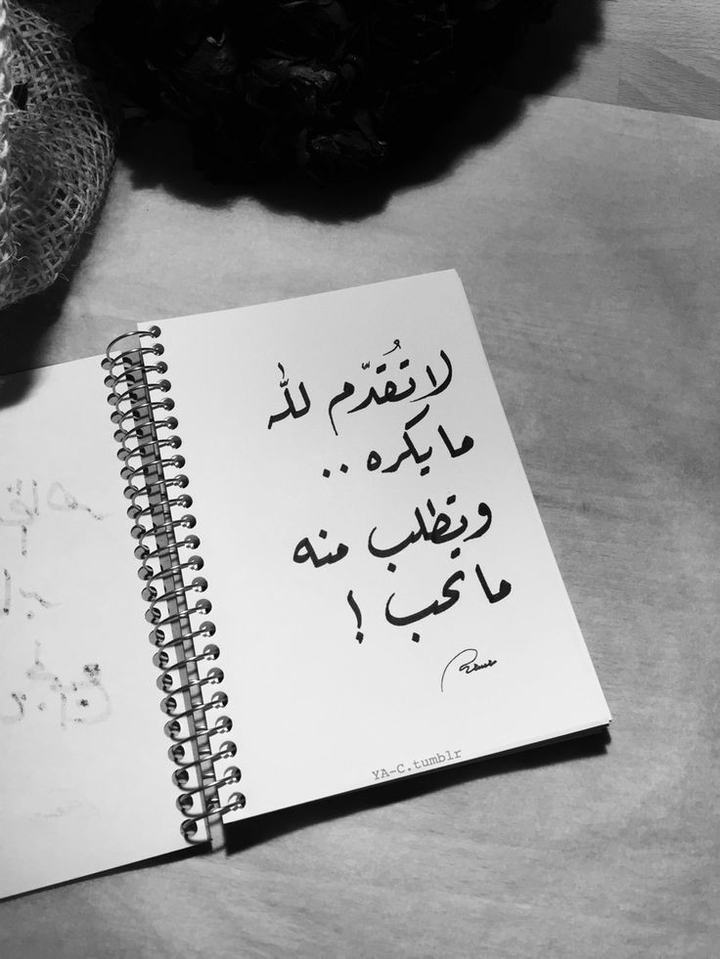 لا تُقدّم لله
ما يكره ..
وتطلب منه
ما تحب !
YA-C.tumblr